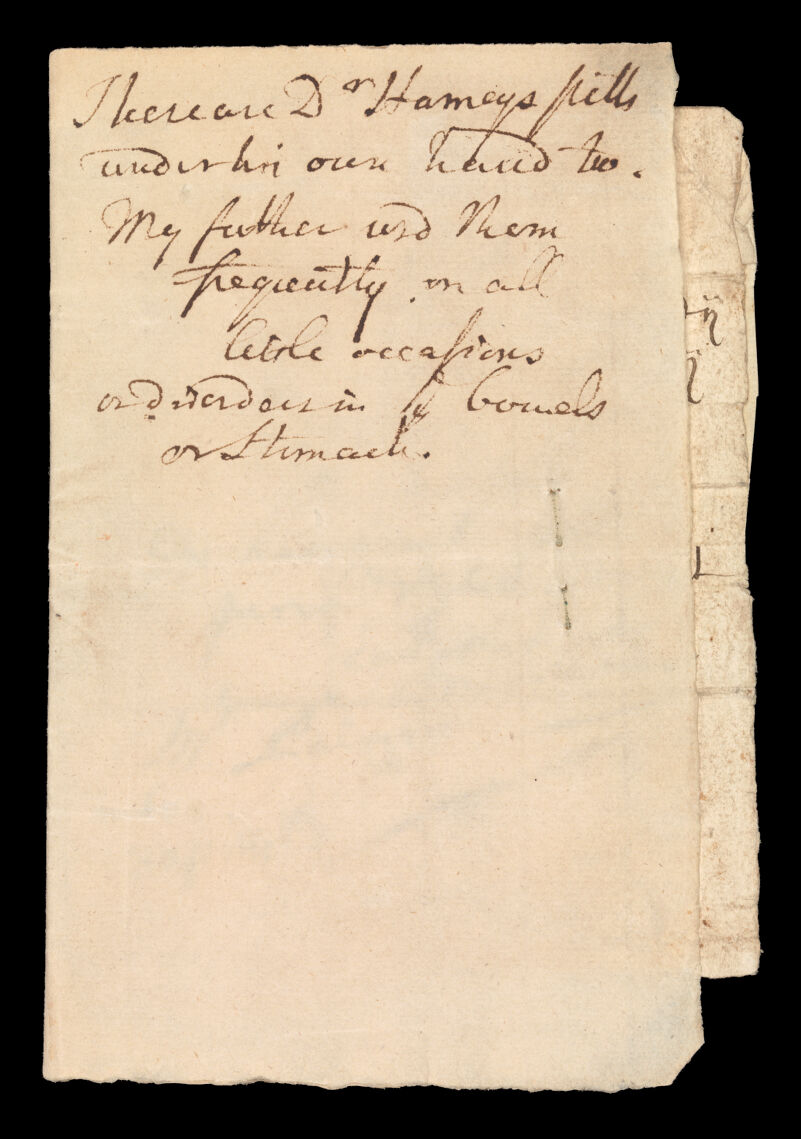 These are Dr Hameys pills
under his own hand too.
My father usd them
frequently on all
little occasions
or disorders in ye bowels
or Stomach.
ij
ij